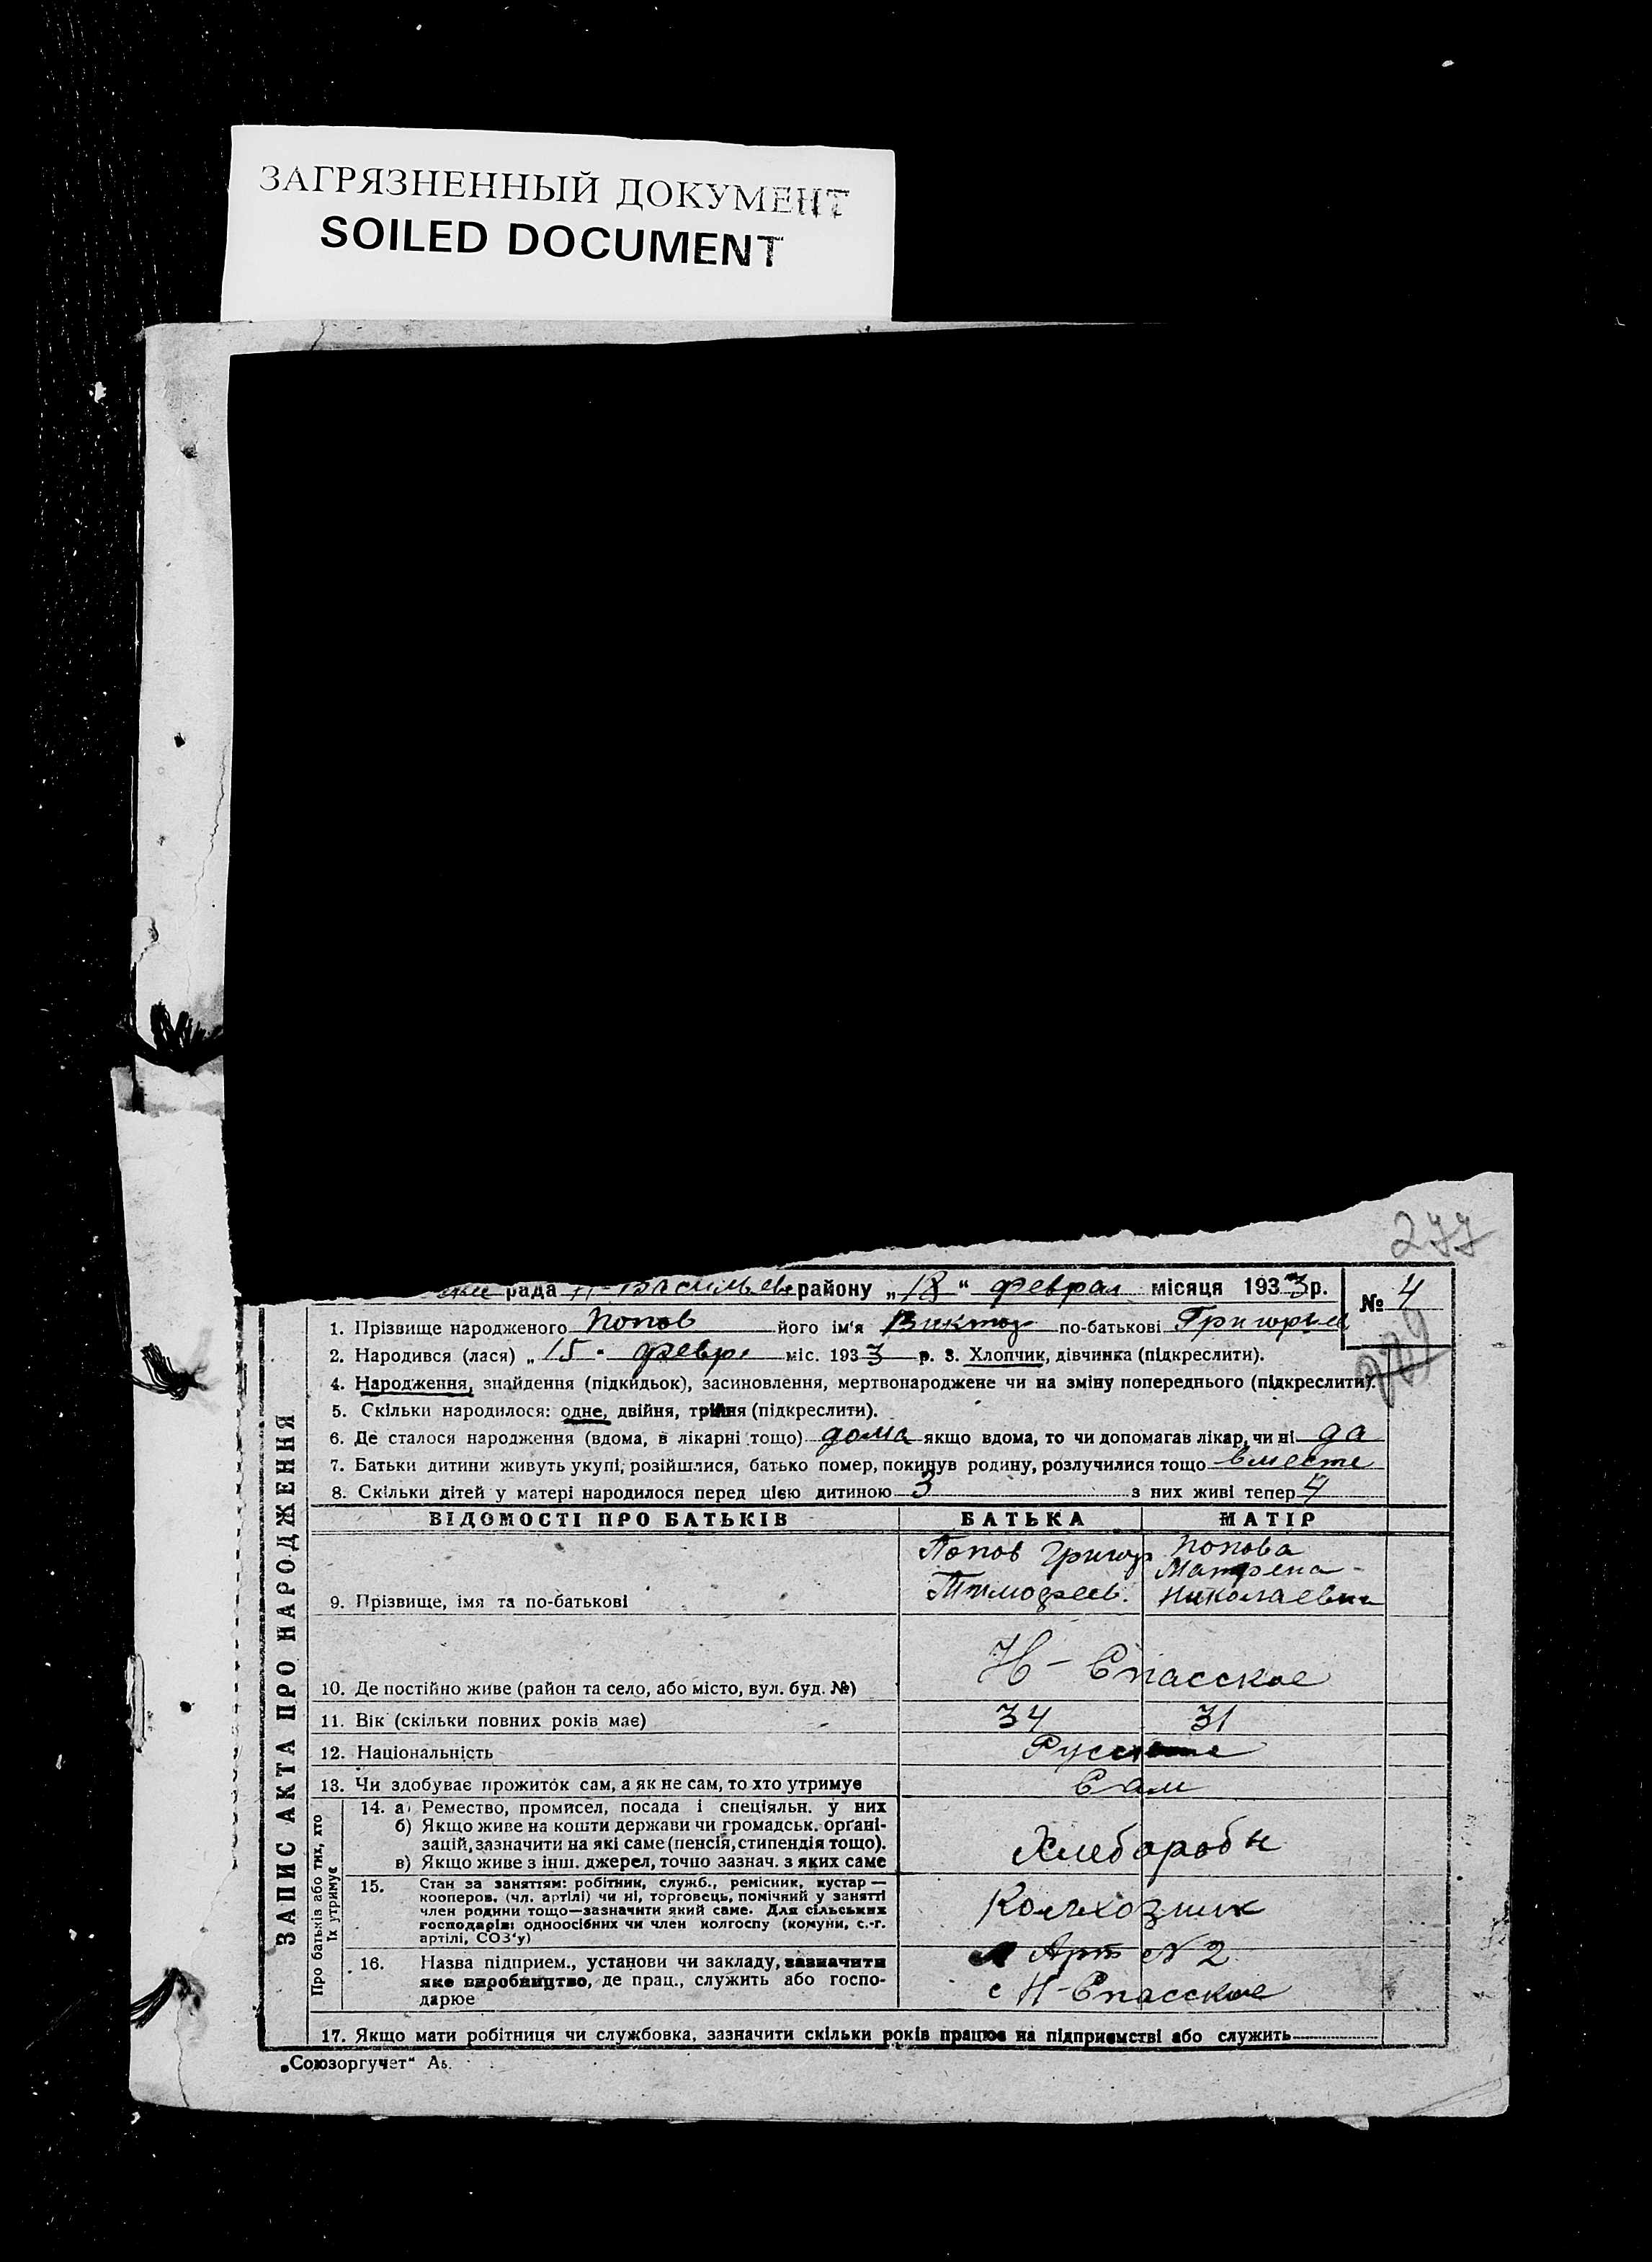 ЗАГРЯЗНЕННЫЙ ДОКУМЕНТ
SOILED DOCUMENT
277
рада Н-Васильев району „18“ феврал місяця 1933р.
№ 4
1. Прізвище народженого Попов його ім'я Виктор по-батькові Григорьев
2. Народився (лася) „15" февр. міс. 1933 р. 3. Хлопчик, дівчинка (підкреслити).
4. Народження, знайдення (підкидьок), засиновлення, мертвонароджене чи на зміну попереднього (підкреслити).
5. Скільки народилося: одне, двійня, трійня (підкреслити).
6. Де сталося народження (вдома, в лікарні тощо) дома якщо вдома, то чи допомагав лікар, чи ні да
7. Батьки дитини живуть укупі, розійшлися, батько помер, покинув родину, розлучилися тощо вместе
8. Скільки дітей у матері народилося перед цією дитиною 3 з них живі тепер 4
ВІДОМОСТІ ПРО БАТЬКІВ БАТЬКА МАТІР
9. Прізвище, імя та по-батькові
Попов Григор
Тимофеев.
Попова
Матрена -
Николаевна
10. Де постійно живе (район та село, або місто, вул. буд. №) Н - Спасское
11. Вік (скільки повних років має) 34 31
12. Національність Русские
13. Чи здобуває прожиток сам, а як не сам, то хто утримує Сам
14. а) Ремество, промисел, посада і спеціяльн. у них
б) Якщо живе на кошти держави чи громадськ. орґані-
зацій, зазначити на які саме (пенсія, стипендія тощо).
в) Якщо живе з інш. джерел, точно зазнач. з яких саме
Хлебаробы
15. Стан за заняттям: робітник, служб., ремісник, кустар —
кооперов. (чл. артілі) чи ні, торговець, помічний у занятті
член родини тощо—зазначити який саме. Для сільських
господарів: одноосібних чи член колгоспу (комуни, с.-г.
артілі, СОЗ'у)
Колхозник
16. Назва підприєм., установи чи закладу, зазначити
яке виробництво, де прац., служить або госпо-
дарює
Арт N 2
с Н-Спасское
17. Якщо мати робітниця чи службовка, зазначити скільки років працює на підприємстві або служить
ЗАПИС АКТА ПРО НАРОДЖЕННЯ
Про батьків або тих, хто
їх утримує
„Союзоргучет“